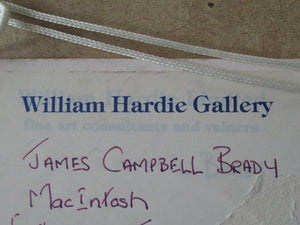 William Hardie Gallery
fine art consultants and valuers
JAMES CAMPBELL BRADY
MacIntosh